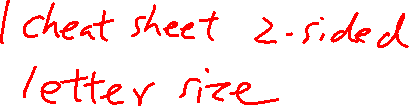 1 cheat sheet 2-sided
letter size